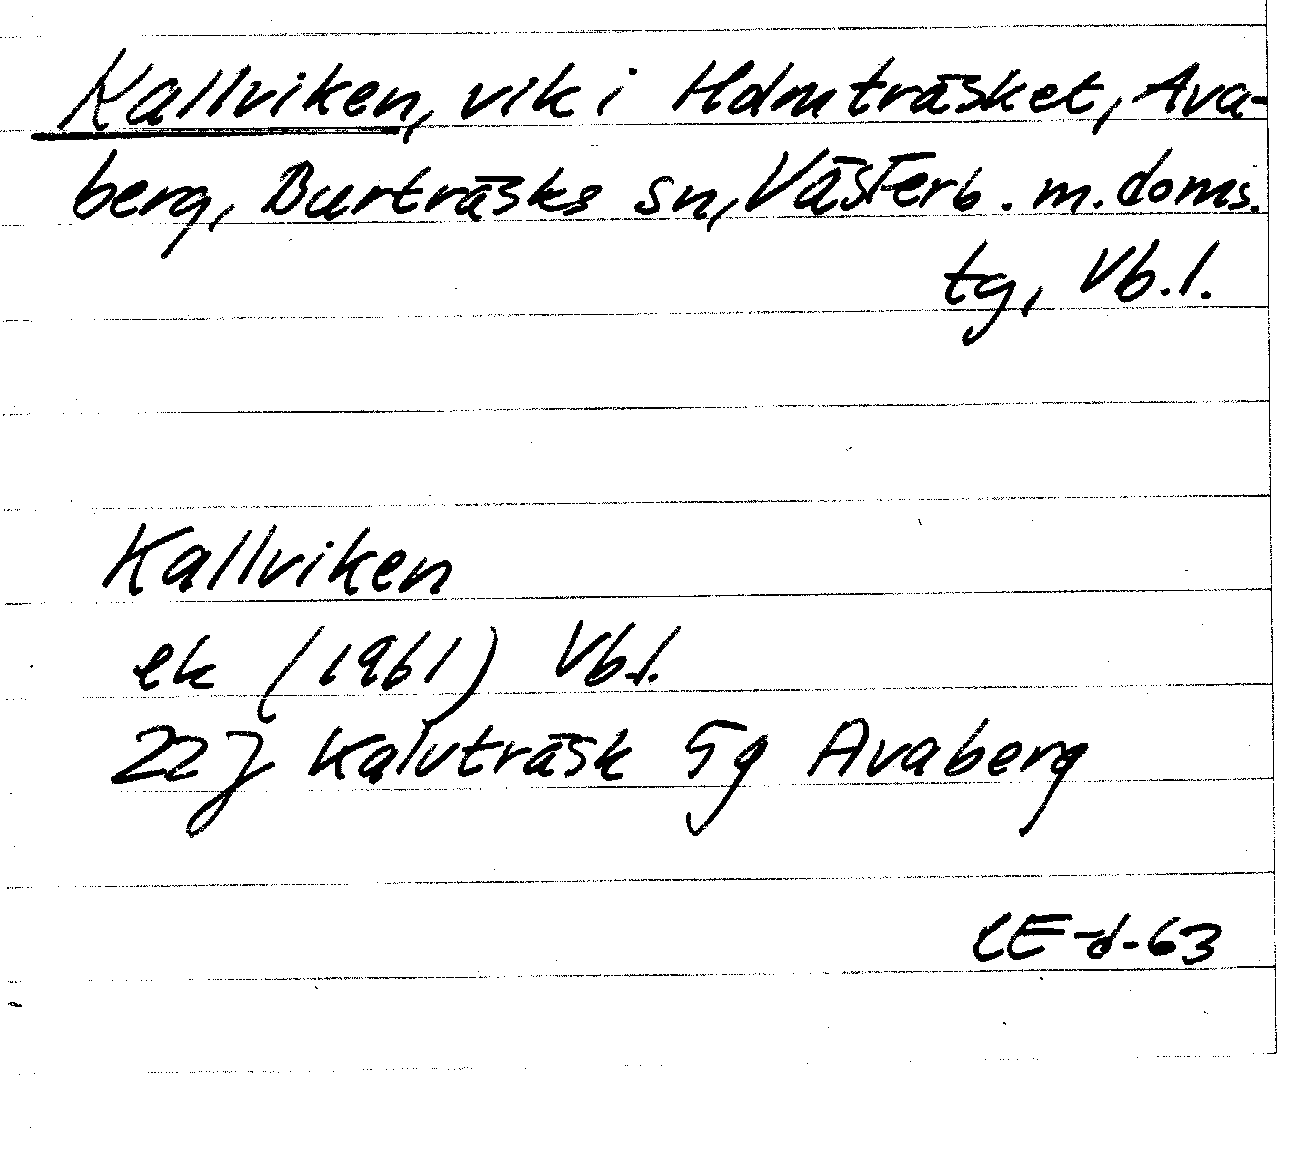 Kallviken, vik i Holmträsket, Ava-
berg, Burträsks sn, Västerb. m. doms.
tg, Vb. l.
Kallviken
ek (1961) Vb.l.
22J Kalvträsk 5g Avaberg
CE-d-63